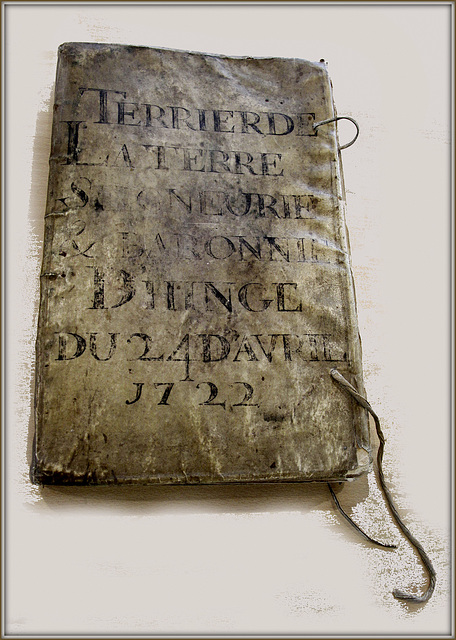 TERRIER DE
LA TERRE
SEIGNEURIE
& BARONNIE
D'HINGE
DU 24 D'AVRIL
1722